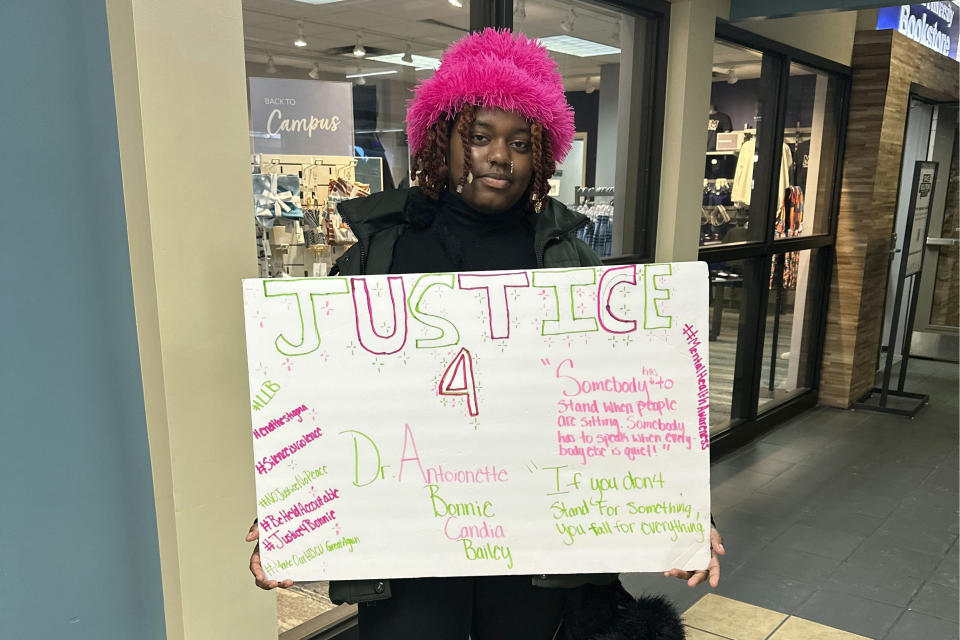 University
Bookstore
BACK TO
Campus
JUSTICE
4
#LLB
#endthestigma
#Silenceisviolence
#NoJusticeNoPeace
#BeHeldAccoutable
#Justice4Bonnie
#MakeOurHBCUGreatAgain
Dr. Antoionette
Bonnie
Candia
Bailey
"Somebody has to
stand when people
are sitting. Somebody
has to speak when every-
body else is quiet!"
"If you don't
stand for something,
you fall for everything"
#MentalHealthAwareness